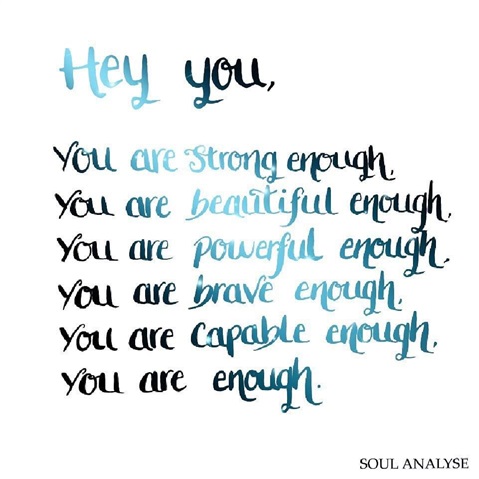 Hey you,
You are strong enough,
You are beautiful enough,
You are powerful enough,
You are brave enough,
You are capable enough,
You are enough.
SOUL ANALYSE